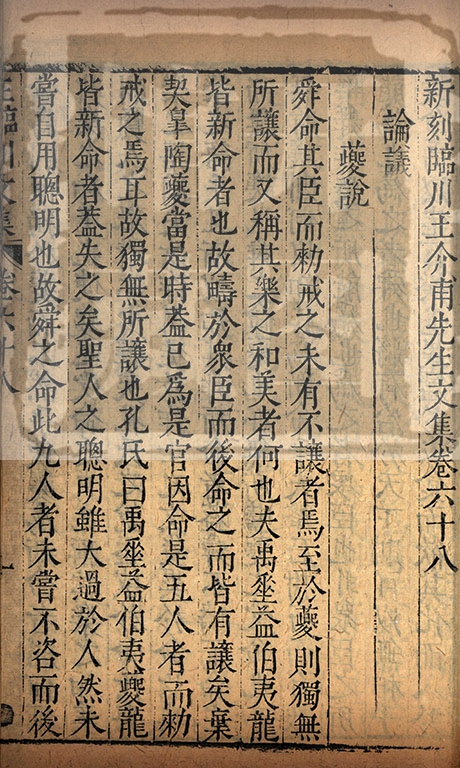 新刻臨川王介甫先生文集卷六十八
論議
夔說
舜命其臣而勑戒之未有不讓者焉至於夔則獨無
所讓而又稱其樂之和美者何也夫禹垂益伯夷龍
皆新命者也故疇於衆臣而後命之而皆有讓矣棄
契臯陶夔當是時葢已爲是官因命是五人者而勑
戒之焉耳故獨無所讓也孔氏曰禹垂益伯夷夔龍
皆新命者葢失之矣聖人之聰明雖大過於人然未
嘗自用聰明也故舜之命此九人者未嘗不咨而後
王臨川文集
卷六十八
一